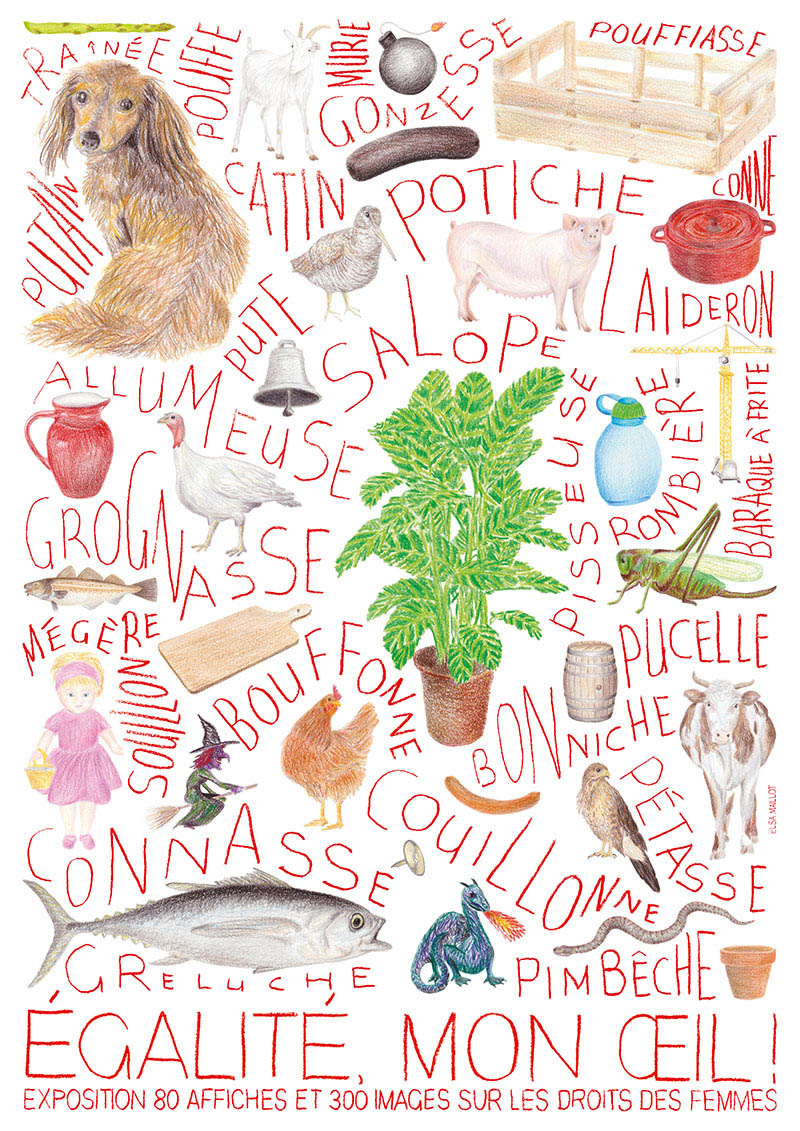 TRAÎNÉE
POUFFE
MURIE
GONZESSE
POUFFIASSE
PUTAIN
CATIN
POTICHE
CONNE
LAIDERON
PUTE
SALOPE
ALLUMEUSE
PISSEUSE
ROMBIÈRE
BARAQUE À FRITE
GROGNASSE
MÉGÈRE
SOUILLON
BOUFFONNE
PUCELLE
BONNICHE
PÉTASSE
ELSA MAILLOT
CONNASSE
COUILLONNE
GRELUCHE
PIMBÊCHE
ÉGALITÉ, MON ŒIL!
EXPOSITION 80 AFFICHES ET 300 IMAGES SUR LES DROITS DES FEMMES